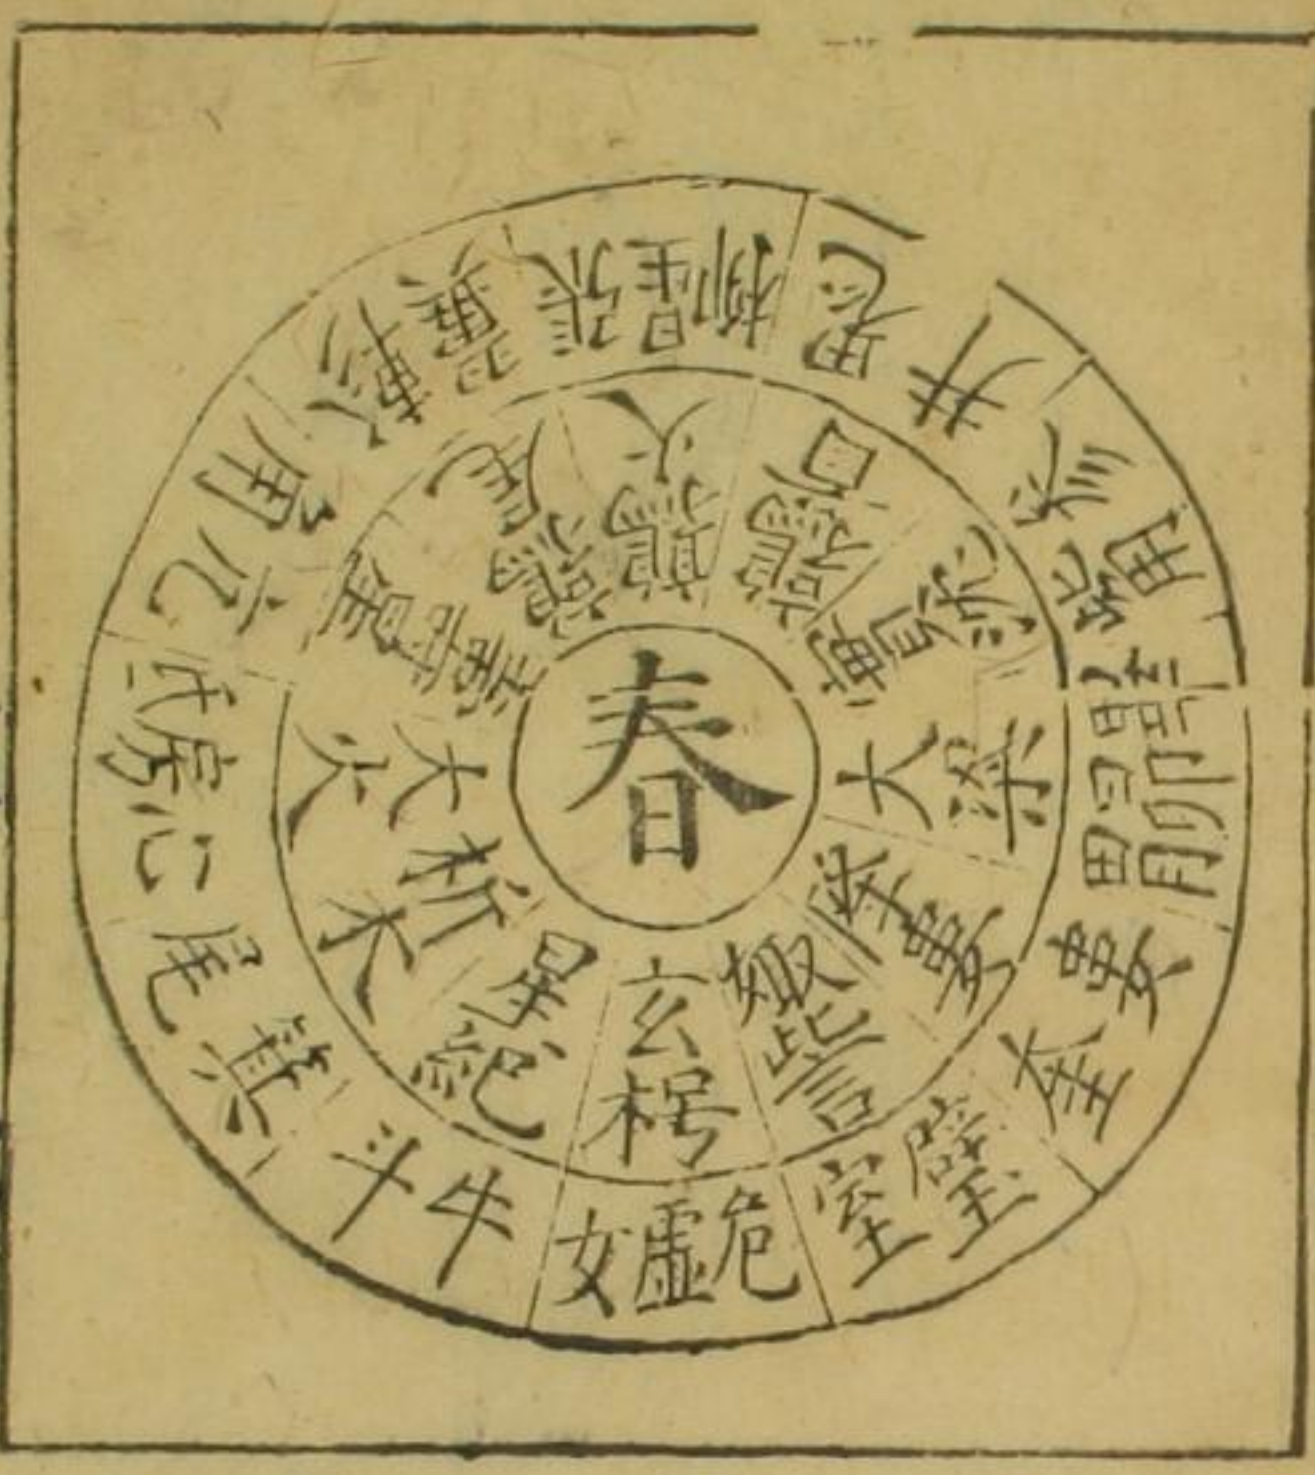 春
玄枵
娵訾
降婁
大梁
實沈
鶉首
鶉火
鶉尾
壽星
大火
析木
星紀
女虛危
室壁
奎婁
胃昴畢
觜參
井鬼
柳星張
翼軫
角亢
氐房心
尾箕
斗牛